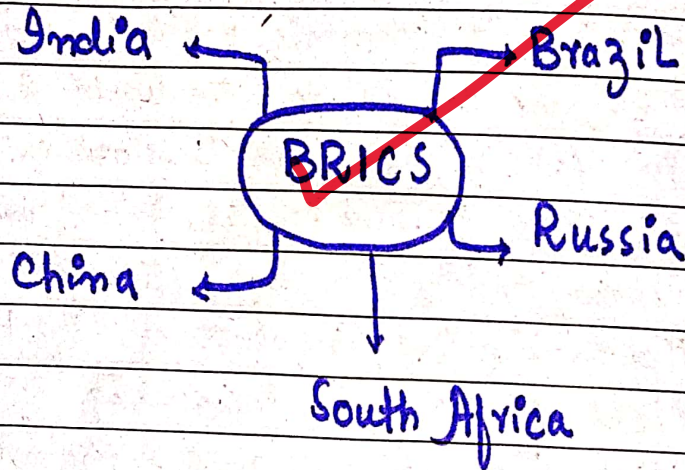 India
Brazil
BRICS
Russia
China
South Africa